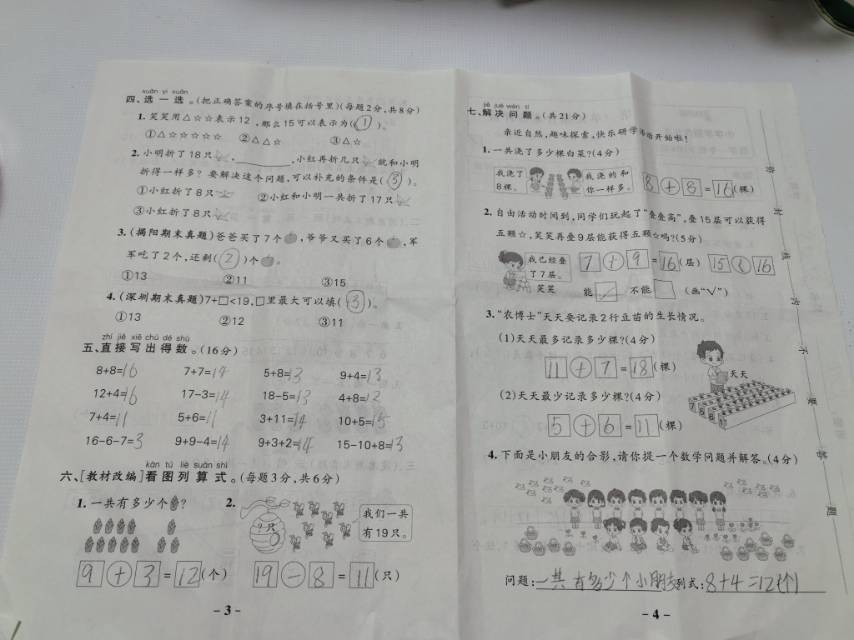 xuǎn yī xuǎn
四、选一选。(把正确答案的序号填在括号里)(每题2分,共8分)
1. 笑笑用△☆☆表示12,那么15可以表示为(①)。
①△☆☆☆☆☆ ②△△☆ ③△☆
2. 小明折了18只,________,小红再折几只就和小明
折得一样多?要解决这个问题,可以补充的条件是(③)。
①小红折了8只 ②小红和小明一共折了17只
③小红折了8只
3. (揭阳期末真题)爸爸买了7个,爷爷又买了6个,军
军吃了2个,还剩(②)个。
①13 ②11 ③15
4. (深圳期末真题)7+□<19,□里最大可以填(③)。
①13 ②12 ③11
zhí jiē xiě chū dé shù
五、直接写出得数。(16分)
8+8=16 7+7=14 5+8=13 9+4=13
12+4=16 17-3=14 18-5=13 4+8=12
7+4=11 5+6=11 3+11=14 10+5=15
16-6-7=3 9+9-4=14 9+3+2=14 15-10+8=13
kàn tú liè suàn shì
六、[教材改编]看图列算式。(每题3分,共6分)
1. 一共有多少个?
9+3=12(个)
2.
?只
我们一共
有19只。
19-8=11(只)
- 3 -
jiě jué wèn tí
七、解决问题。(共21分)
亲近自然,趣味探索,快乐研学活动开始啦!
1. 一共浇了多少棵白菜?(4分)
我浇了
8棵。
我浇的和
你一样多。
8+8=16(棵)
2. 自由活动时间到,同学们玩起了“叠叠高”。叠15层可以获得
五颗☆,笑笑再叠9层能获得五颗☆吗?(5分)
我已经叠
了7层。
笑笑
7+9=16(层) 15<16
能 ✓ 不能 (画“√”)
3. “农博士”天天要记录2行豆苗的生长情况。
(1)天天最多记录多少棵?(4分)
11+7=18(棵)
天天
(2)天天最少记录多少棵?(4分)
5+6=11(棵)
4. 下面是小朋友的合影,请你提一个数学问题并解答。(4分)
问题:一共有多少个小朋友 列式:8+4=12(个)
- 4 -
密
封
线
内
不
要
答
题